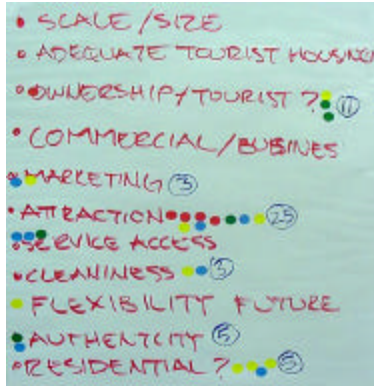 • SCALE/SIZE
• ADEQUATE TOURIST HOUSING
• OWNERSHIP/TOURIST ? 11
• COMMERCIAL/BUSINES
• MARKETING 3
• ATTRACTION 25
• SERVICE ACCESS
• CLEANINESS 3
FLEXIBILITY FUTURE
• AUTHENTCITY 5
• RESIDENTIAL ? 5